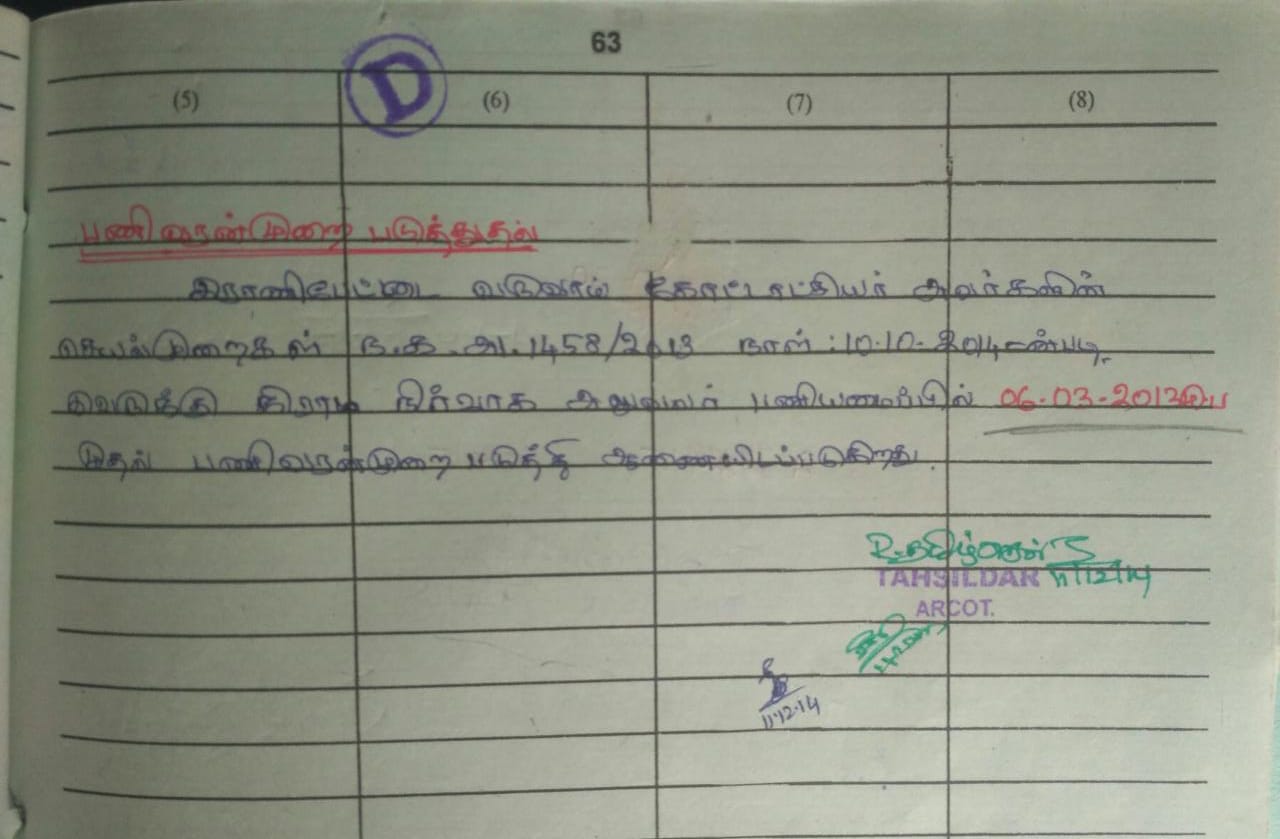 63
D
(5) (6) (7) (8)
பணிவரன்முறை படுத்துதல்
இராணிபேட்டை வருவாய் கோட்டாட்சியர் அவர்களின்
செயல்முறைகள் ந.க.அ.1458/2013 நாள்:10.10.2014-ன்படி
கிராம நிர்வாக அலுவலர் பணியமைப்பில் 06.03.2013
முதல் பணிவரன்முறை படுத்தி ஆணையிடப்படுகிறது.
TAHSILDAR 11/12/14
ARCOT.
11.12.14